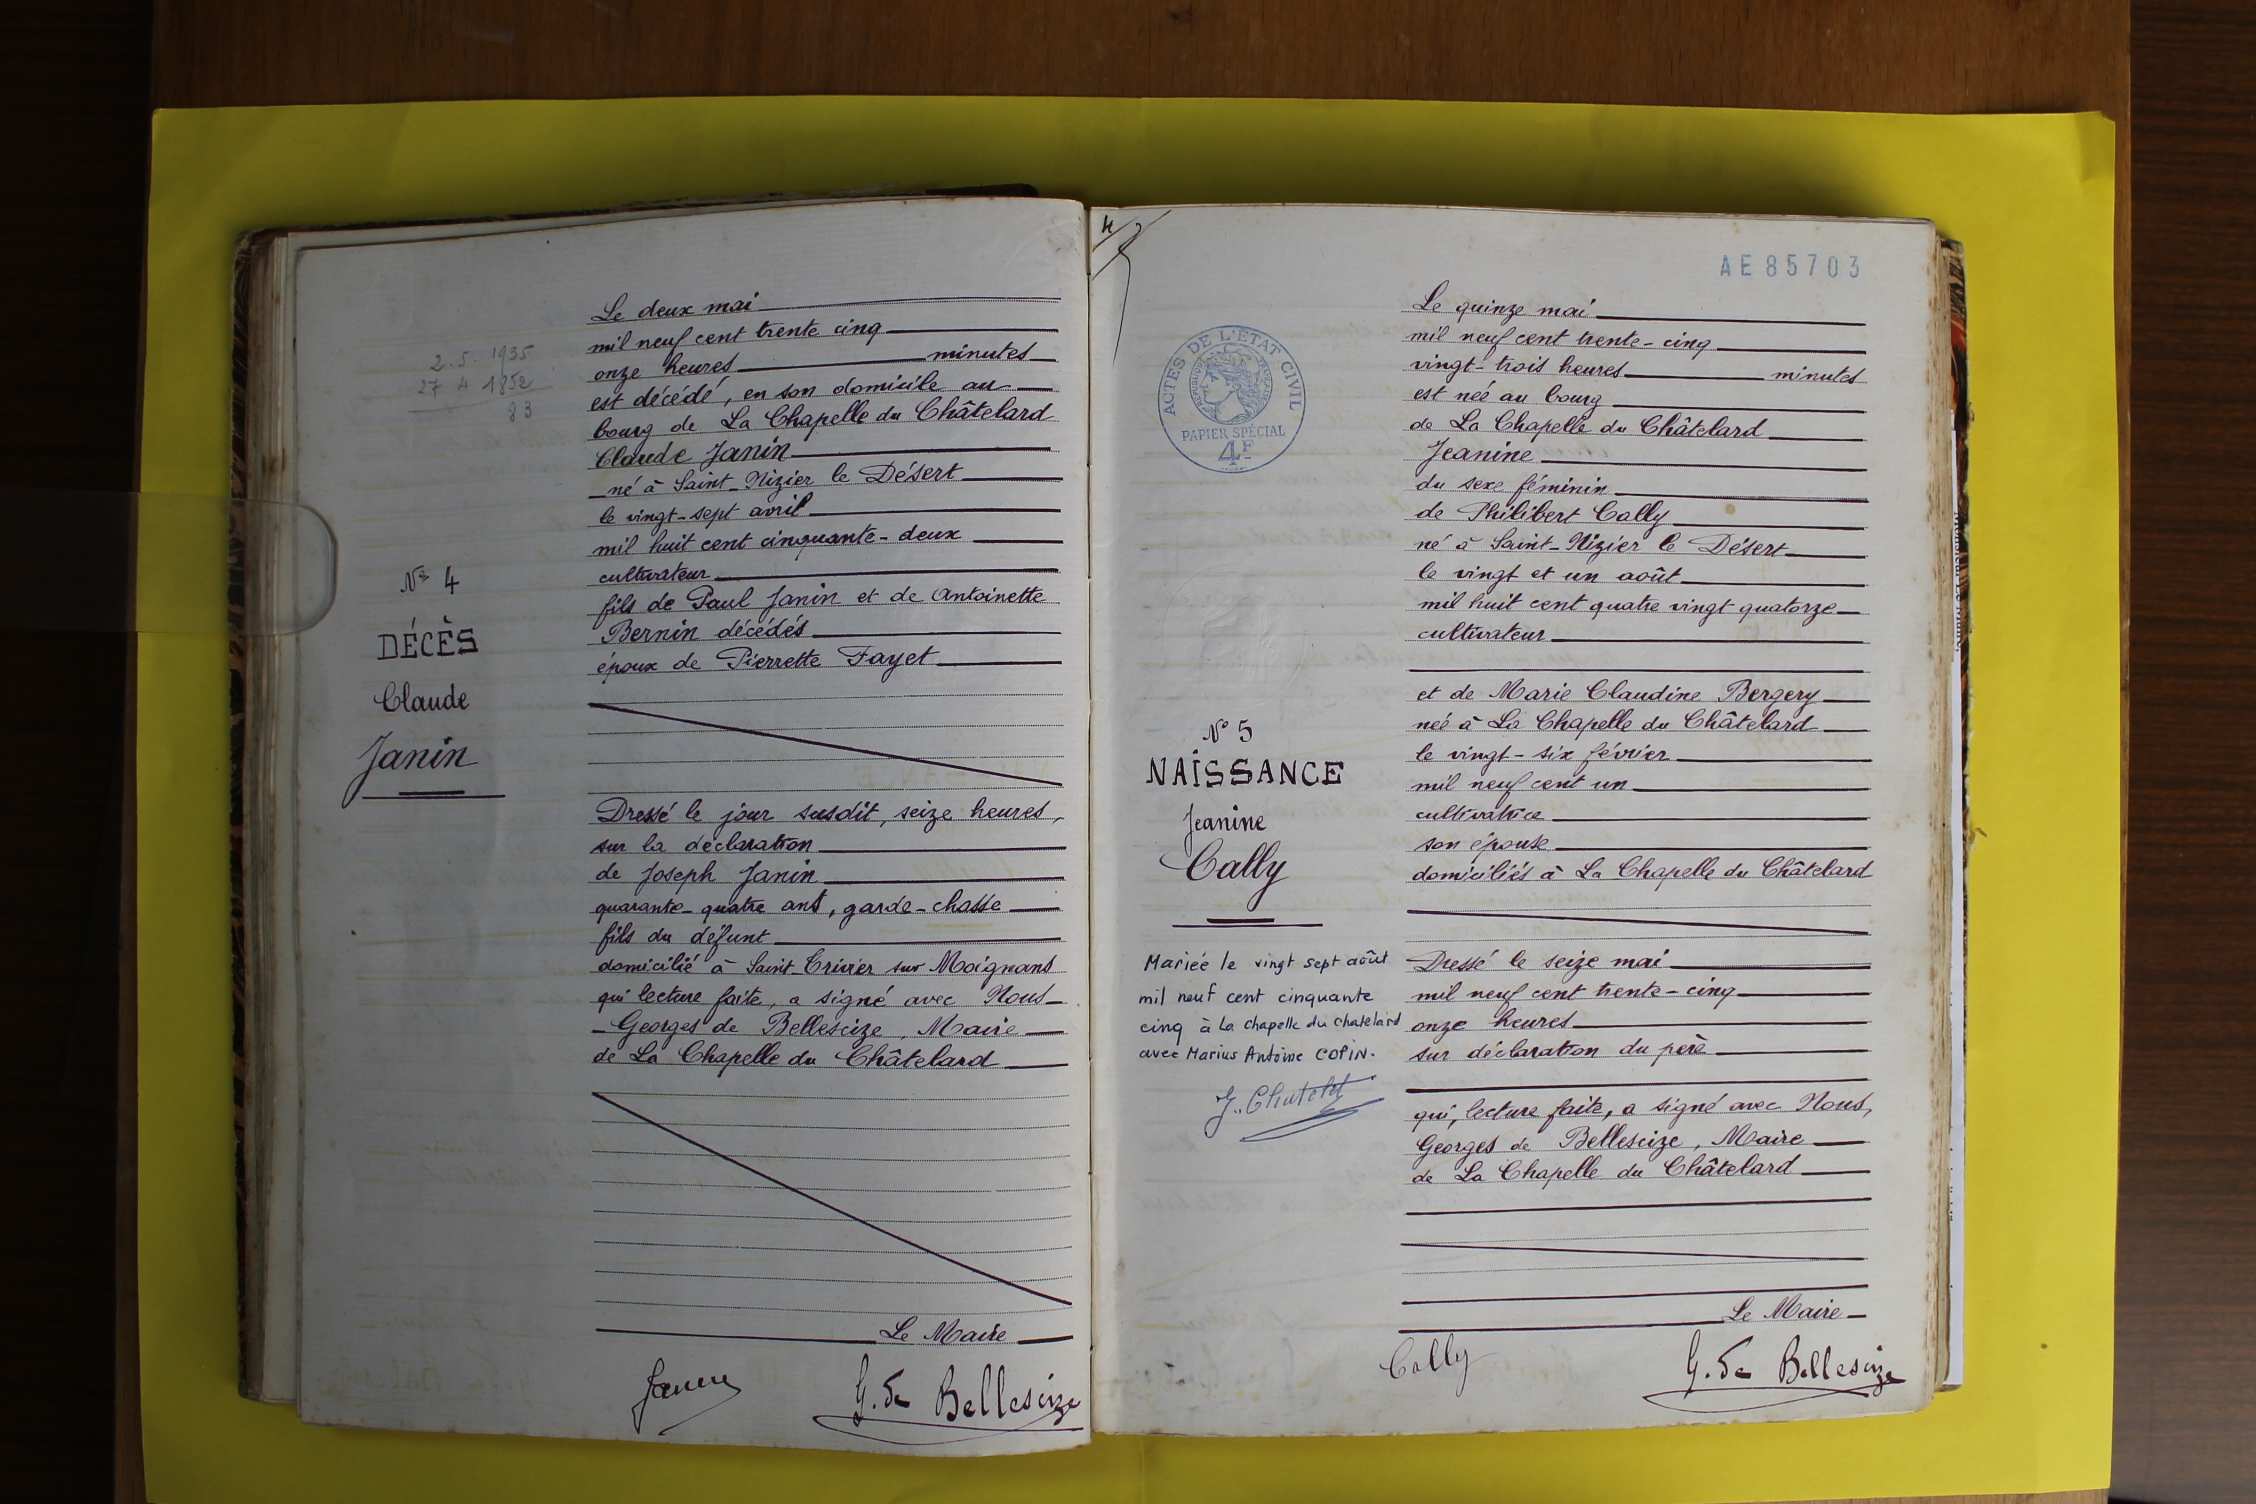 2.5.1935
27 4 1852
83
N° 4
DÉCÈS
Claude
Janin
Le deux mai
mil neuf cent trente cinq
onze heures minutes
est décédé, en son domicile au
bourg de La Chapelle du Châtelard
Claude Janin
né à Saint-Nizier le Désert
le vingt-sept avril
mil huit cent cinquante-deux
cultivateur
fils de Paul Janin et de Antoinette
Bernin décédés
époux de Pierrette Fayet
Dressé le jour susdit, seize heures,
sur la déclaration
de Joseph Janin
quarante-quatre ans, garde-chasse
fils du défunt
domicilié à Saint-Trivier sur Moignans
qui lecture faite, a signé avec Nous
Georges de Bellescize, Maire
de La Chapelle du Châtelard
Le Maire
Janin
G. de Bellescize
4
AE85703
ACTES DE L'ÉTAT CIVIL
PAPIER SPÉCIAL
4F
N° 5
NAISSANCE
Jeanine
Cally
Mariée le vingt sept août
mil neuf cent cinquante
cinq à La chapelle du chatelard
avec Marius Antoine COPIN.
Le quinze mai
mil neuf cent trente-cinq
vingt-trois heures minutes
est née au bourg
de La Chapelle du Châtelard
Jeanine
du sexe féminin
de Philibert Cally
né à Saint-Nizier le Désert
le vingt et un août
mil huit cent quatre vingt quatorze
cultivateur
et de Marie Claudine Bergery
née à La Chapelle du Châtelard
le vingt-six février
mil neuf cent un
cultivatrice
son épouse
domiciliés à La Chapelle du Châtelard
Dressé le seize mai
mil neuf cent trente-cinq
onze heures
sur déclaration du père
qui, lecture faite, a signé avec Nous,
Georges de Bellescize, Maire
de La Chapelle du Châtelard
Le Maire
Cally
G. de Bellescize